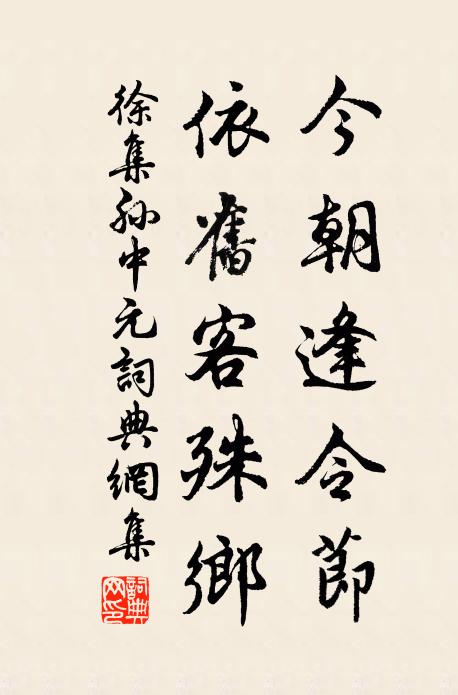 今朝逢令節
依舊客殊鄉
徐集孫中元詞典網集
詞典网印